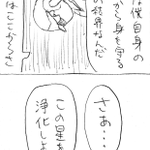 は僕自身の
から身を守る
の結界なんだ
はここからさ
さぁ・・・
この星を
浄化しよ